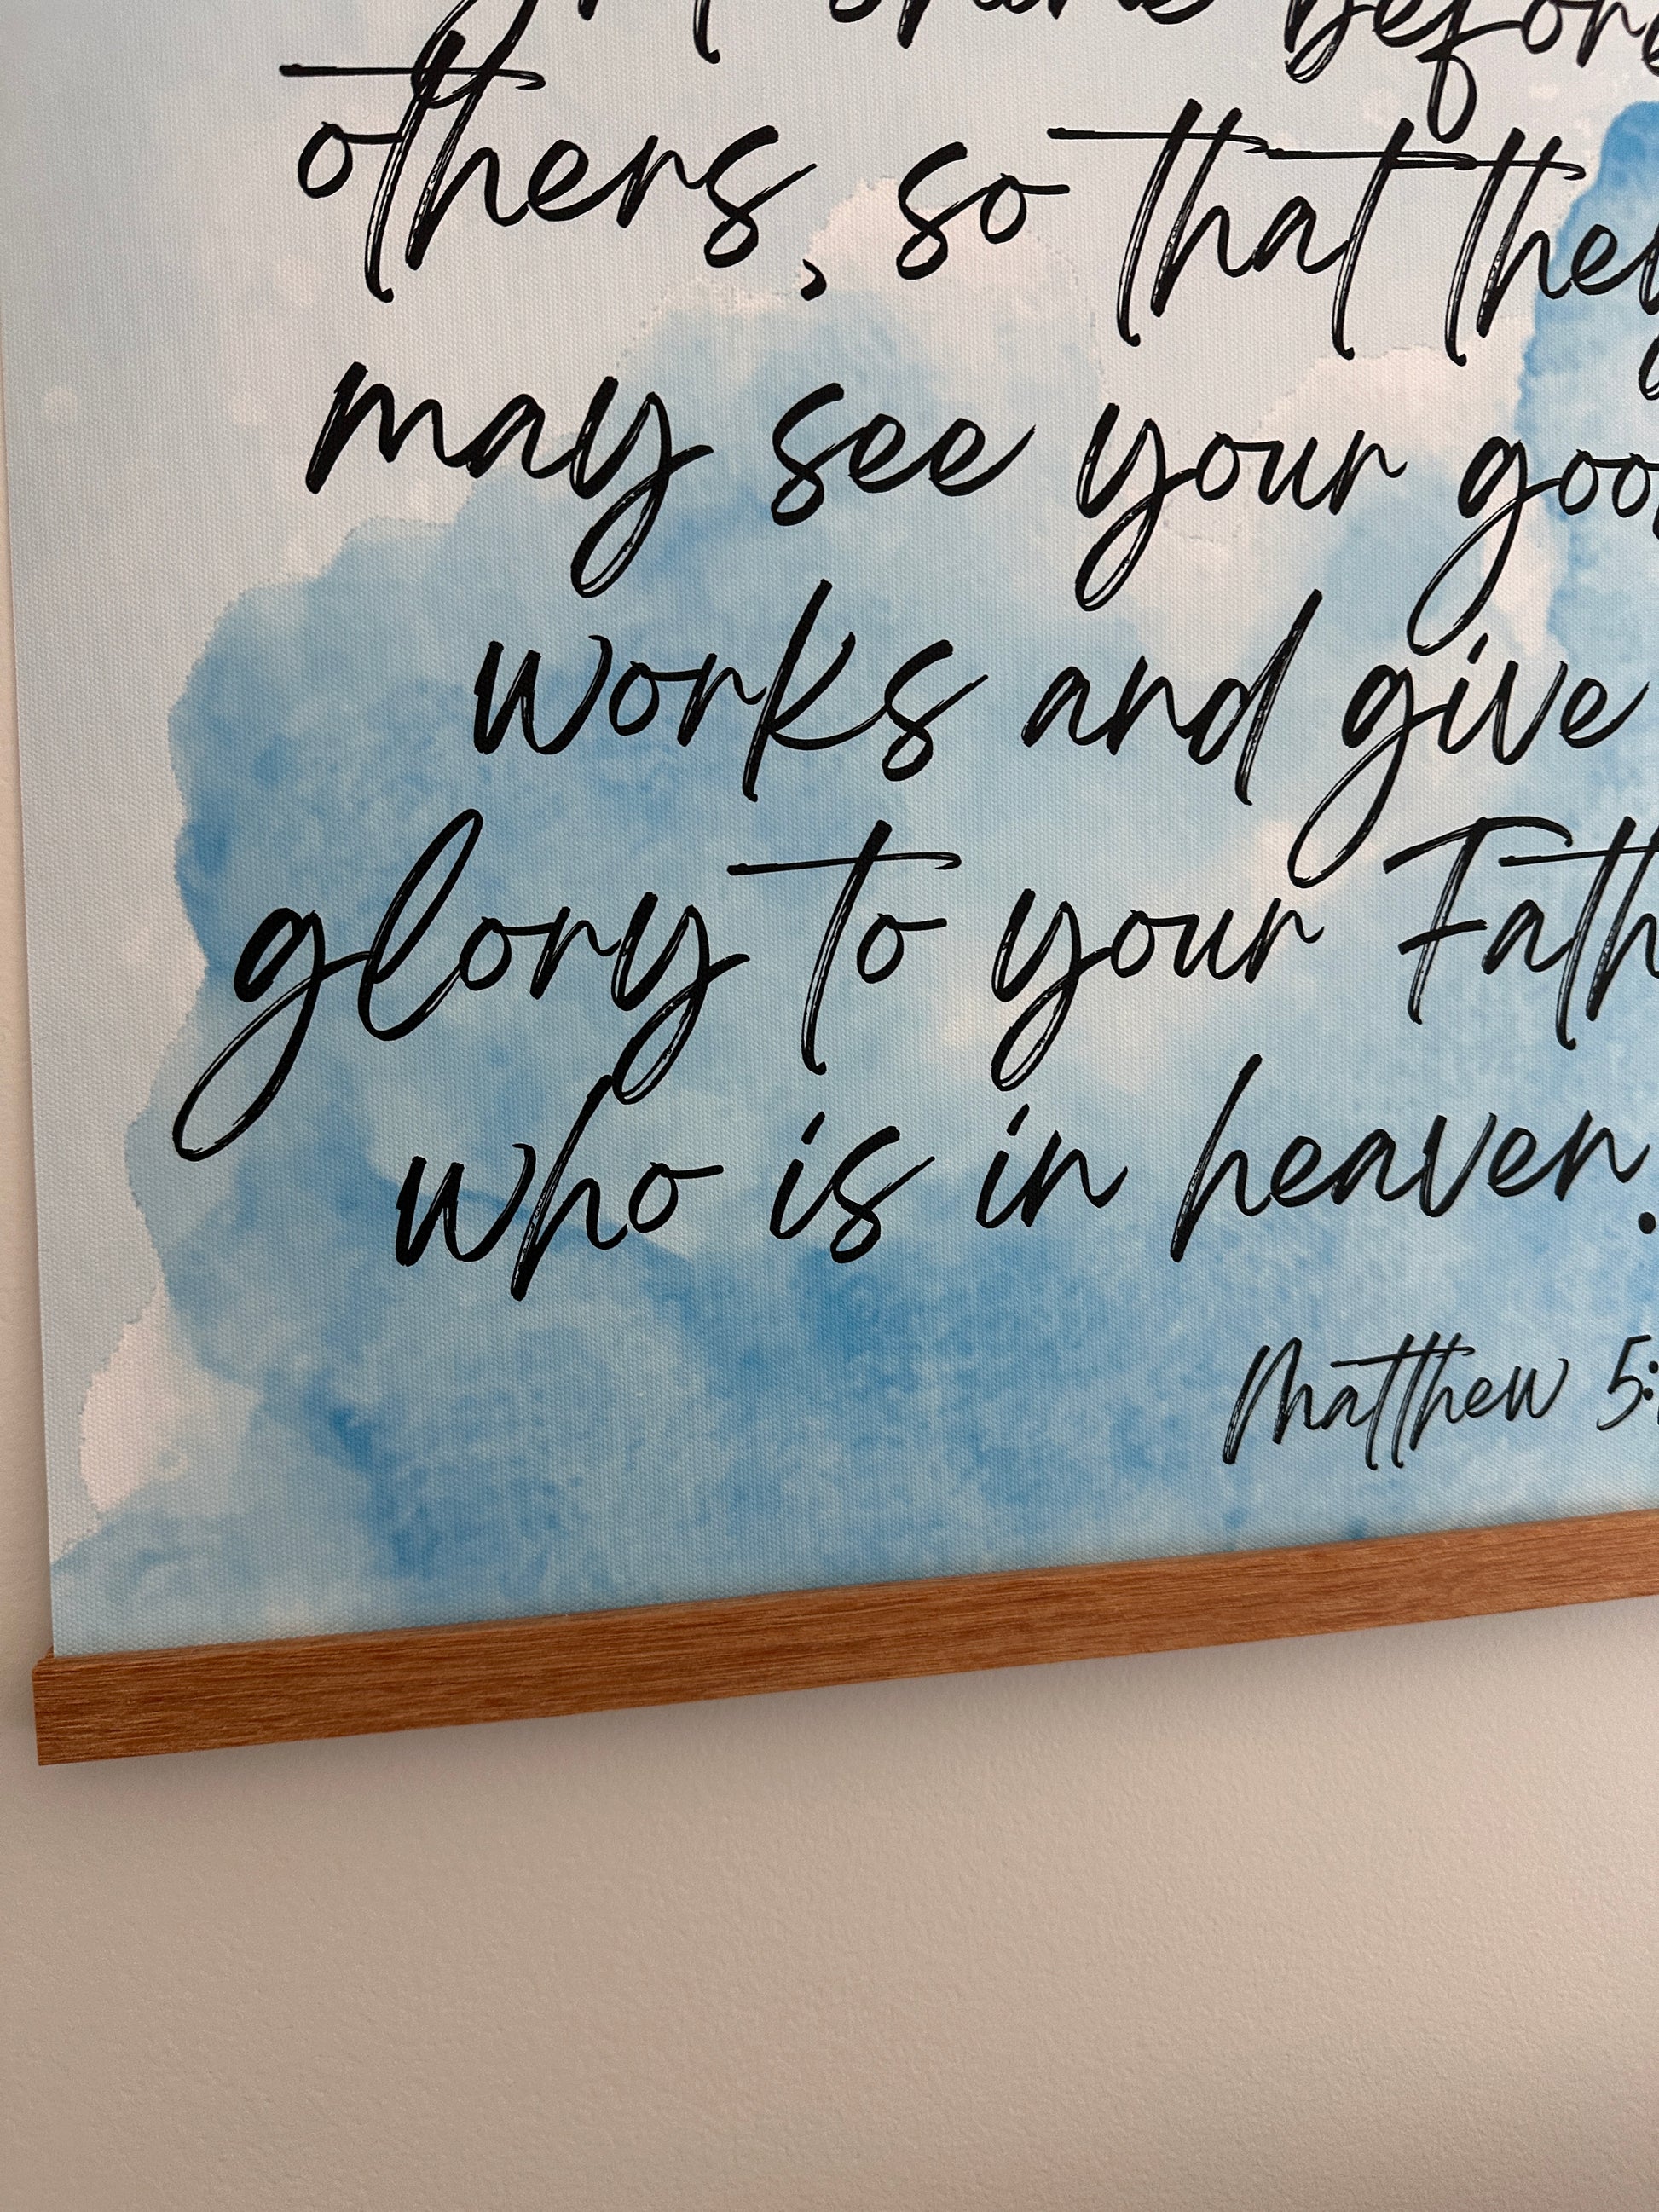 shine before
others, so that they
may see your
works and give
glory to your
who is in heaven.
Matthew 5: